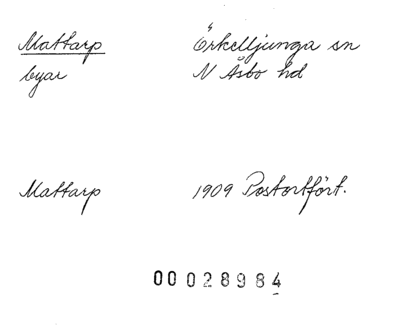 Mattarp Örkelljunga sn
byar N Åsbo hd
Mattarp 1909 Postortfört.
00028984